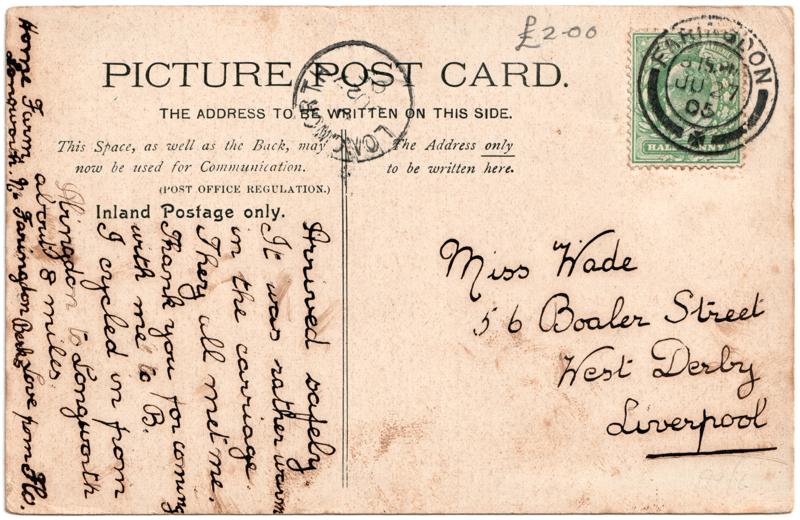 £2-00
PICTURE POST CARD.
THE ADDRESS TO BE WRITTEN ON THIS SIDE.
This Space, as well as the Back, may
now be used for Communication.
(POST OFFICE REGULATION.)
Inland Postage only.
The Address only
to be written here.
LONGWORTH
FARINGDON
JU 27
05
HALFPENNY
Miss Wade
56 Boaler Street
West Derby
Liverpool
Arrived safely.
It was rather warm
in the carriage.
They all met me.
Thank you for coming
with me to B.
I cycled in from
Abingdon to Longworth
about 8 miles.
Home Farm,
Longworth. Nr Faringdon Berks Love from Flo.